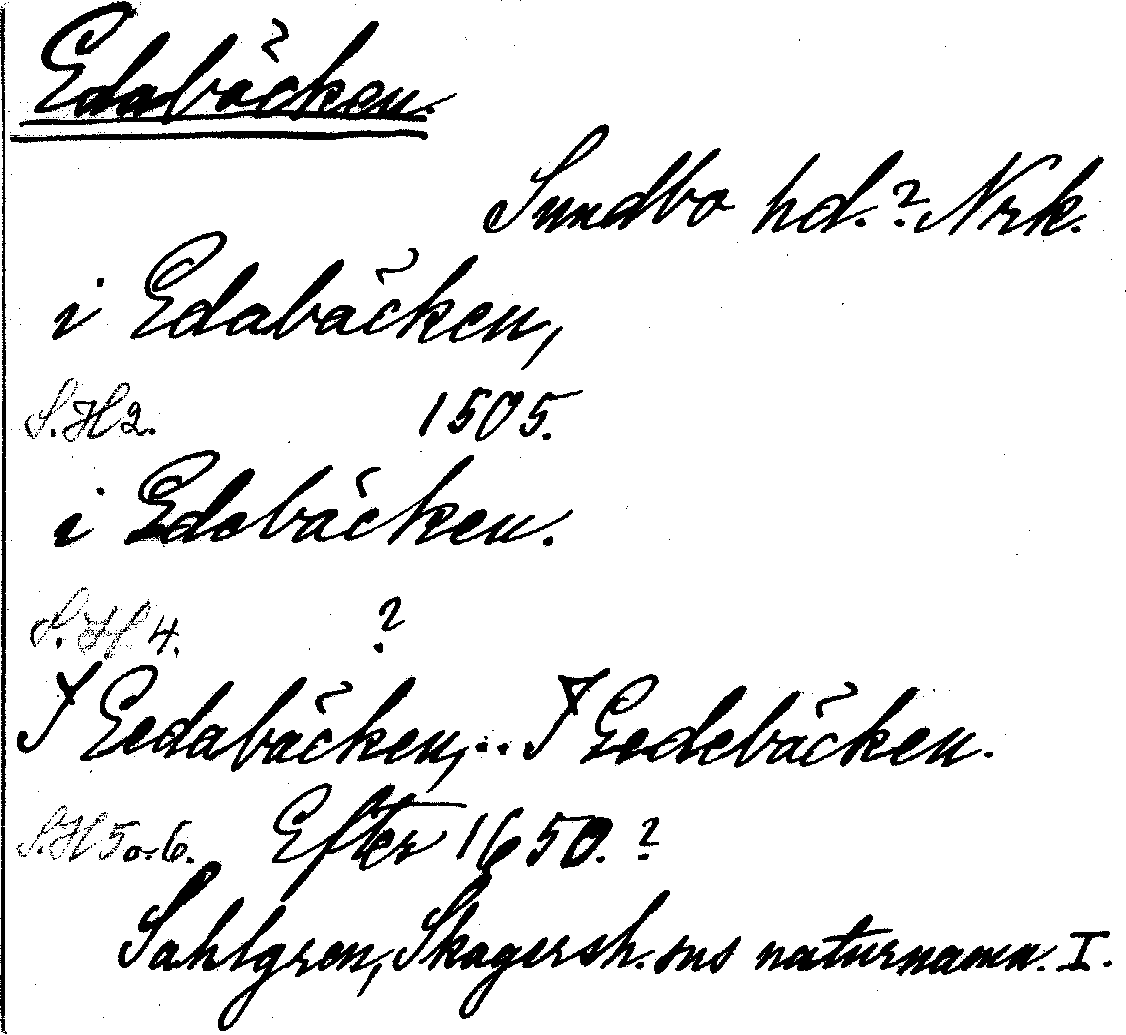 Edabäcken.
Sundbo hd.? Nrk.
i Edabäcken,
S.H2. 1505.
i Edebäcken.
S.H.4. ?
I Eedabäcken,... I Eedebäcken.
S.H5o.6. Efter 1650.?
Sahlgren, Skagersh. sns naturnamn. I.